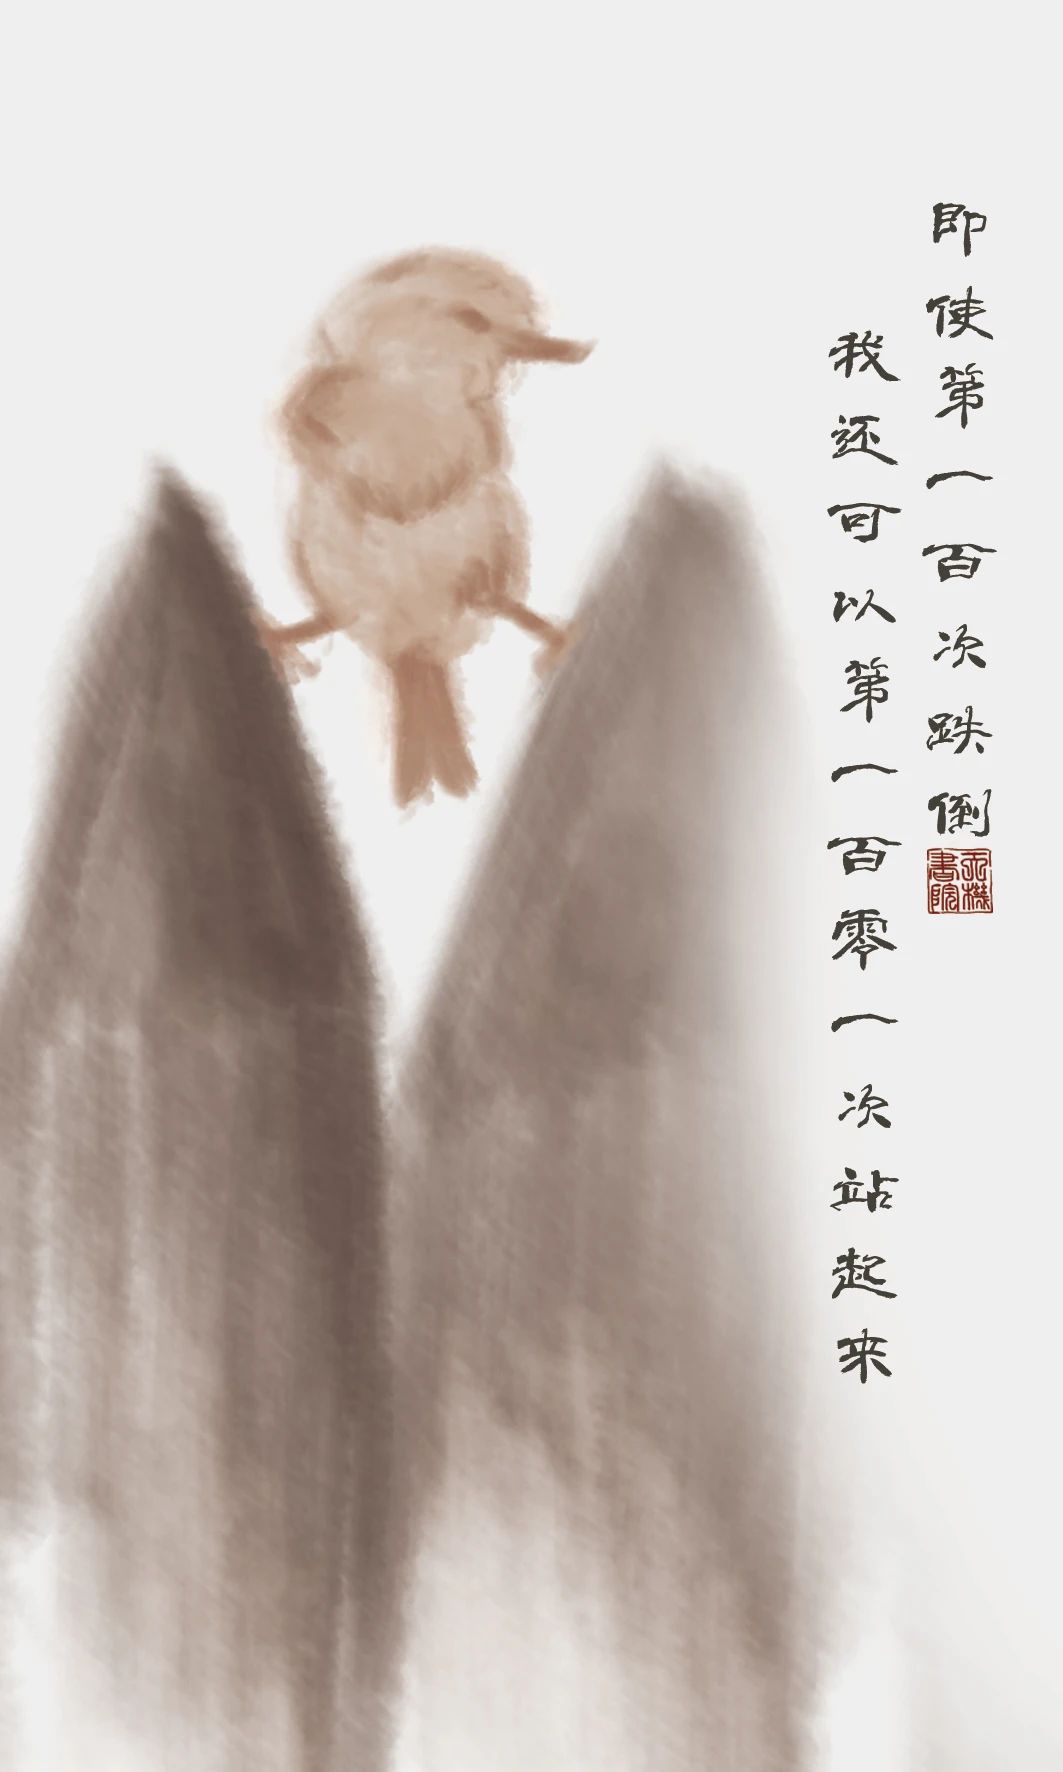 即使第一百次跌倒
我还可以第一百零一次站起来
書院